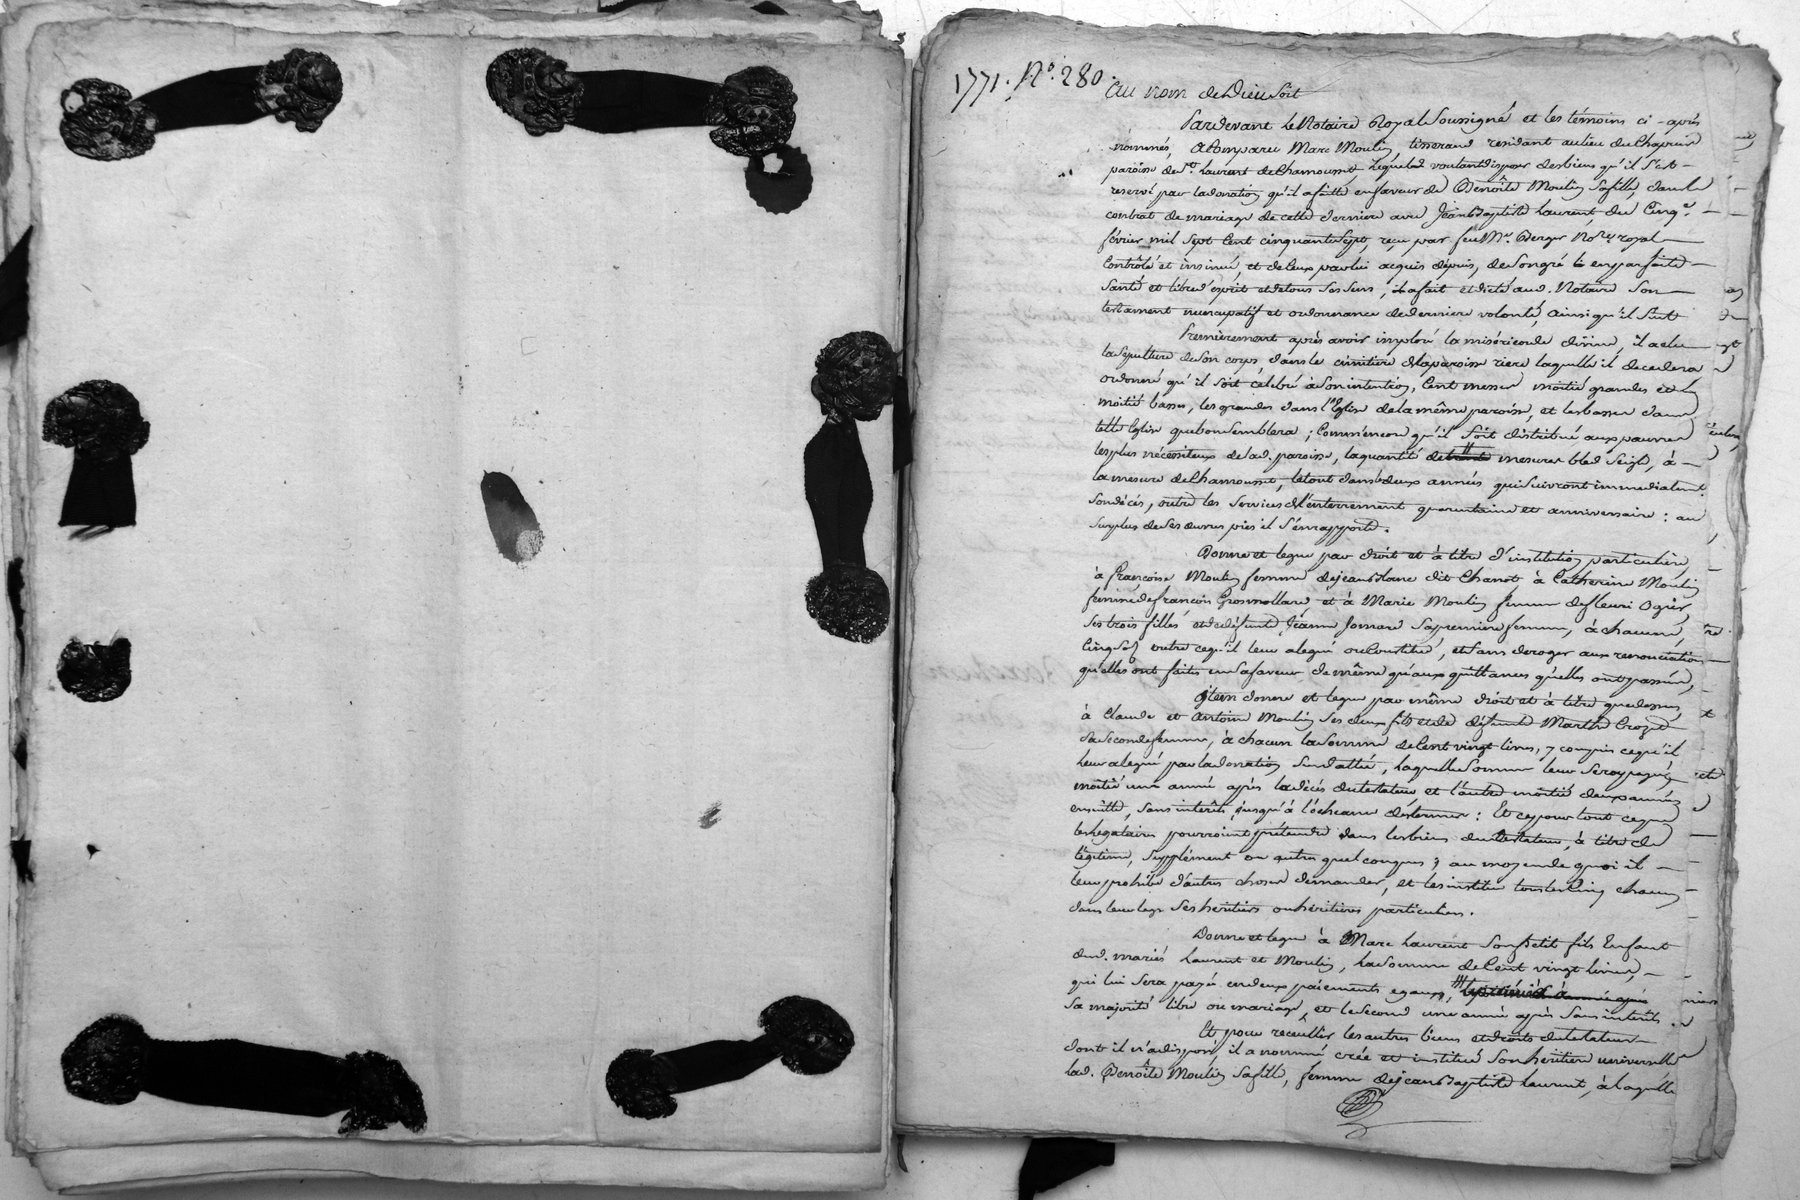 1771. N.° 280.
Au nom de Dieu soit
Pardevant le Notaire Royal soussigné et les témoins ci-après
nommés, a comparu Marc Moulin tisserand residant au lieu de
paroisse de S.t Laurent de Chamousset, lequel voulant disposer des biens qu'il s'est
reservé par la donation qu'il a faitte en faveur de Benoîte Moulin sa fille, dans le
contrat de mariage de cette derniere avec Jean Baptiste Laurent du Cinq.e
février mil sept cent cinquante sept, reçu par feu M.e Berger No.re royal
Contrôlé et insinué, et de ceux par lui acquis depuis, de son gré & en parfaite
santé et libre d'esprit et de tous ses sens, il a fait et dicté aud. Notaire son
testament nuncupatif et ordonnance de derniere volonté, ainsi qu'il suit
Premièrement après avoir imploré la miséricorde divine, il a elu
la sepulture de son corps dans le cimitiere de la paroisse riere laquelle il decedera
ordonné qu'il soit célebré à son intention, Cent messes moitié grandes et
moitié basses, les grandes dans l'Eglise de la même paroisse, et les basses dans
telle Eglise que bon semblera ; Comm'encore qu'il soit distribué aux pauvres
les plus nécessiteux de sad. paroisse, la quantité de mesures bled seigle, à
la mesure de Chamousset, le tout dans les deux années qui suivront immediatem.t
son décès, outre les services d'enterrement quarantaine et anniversaire : au
surplus de ses œuvres pies il s'en rapporte.
Donne et legue par droit et à titre d'institution particuliere,
à françoise Moulin femme de jean blanc dit Chanot à Catherine Moulin
femme de françois Grosmollard et à Marie Moulin femme de fleuri Ogier,
ses trois filles et de défunte Jeanne Jornard sa premiere femme, à chacune,
Cinq sols outre ce qu'il leur a legué ou Constitué, et sans deroger aux renonciations
qu'elles ont faites en sa faveur de même qu'aux quittances qu'elles ont passées,
Item donne et legue par même droit et à titre que dessus,
à Claude et Antoine Moulin ses deux fils et de défunte Marthe Crozet
sa seconde femme, à chacun la somme de Cent vingt livres, y compris ce qu'il
leur a legué par la donation susdattée, laquelle somme leur sera payée,
moitié une année après le décès du testateur et l'autre moitié deux années
ensuitte, sans interêts, jusqu'à l'échéance des termes : Et ce pour tout ce que
les legataires pourroient prétendre dans les biens du testateur, à titre de
légitime, supplément ou autres quelconques ; au moyen de quoi il
leur prohibe d'autres choses demander, et les institue tous les Cinq chacun
dans leur legs ses heritiers ou héritières particuliers.
Donne et legue à Marc Laurent son petit fils Enfant
desd. mariés Laurent et Moulin, la somme de Cent vingt livres,
qui lui sera payée en deux paiements egaux,
sa majorité libre ou mariage, et le second une année après sans interêts.
Et pour recueillir les autres biens et droits du testateur
dont il n'a disposé, il a nommé créé et institué son heritiere universelle
lad. Benoîte Moulin sa fille, femme de jean Baptiste Laurent, à laquelle